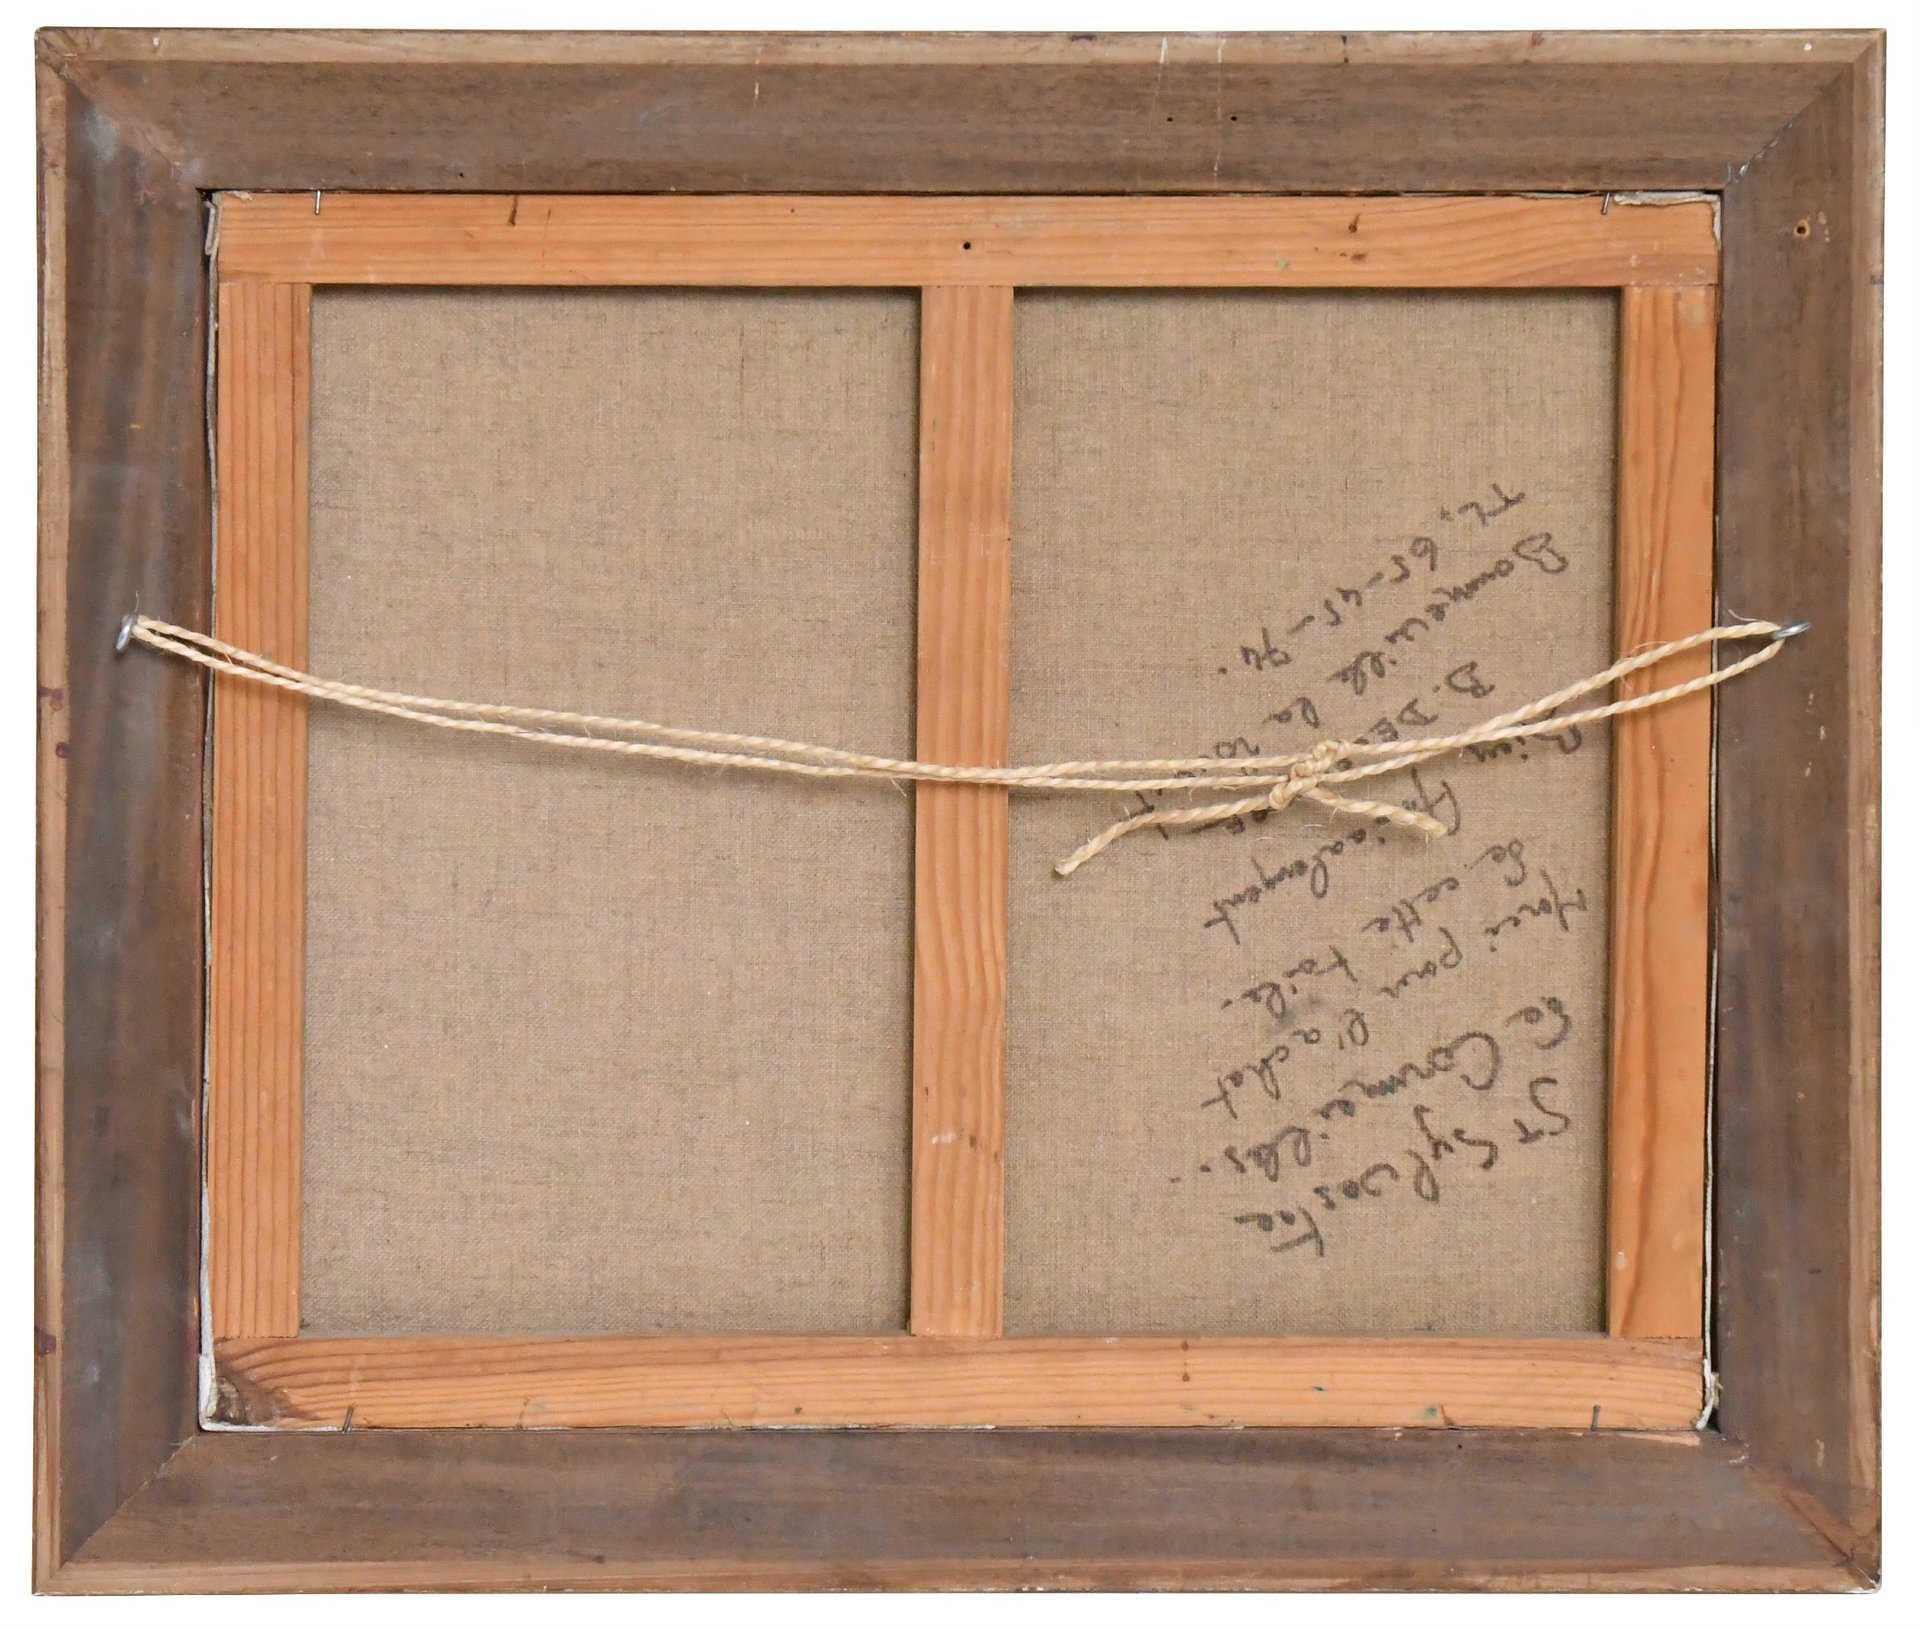 St Sylvestre
de Cormeilles.
Merci pour l'achat
de cette toile.
Bien Amicalement
B.
Bonneville la
TL, 65-45-74.